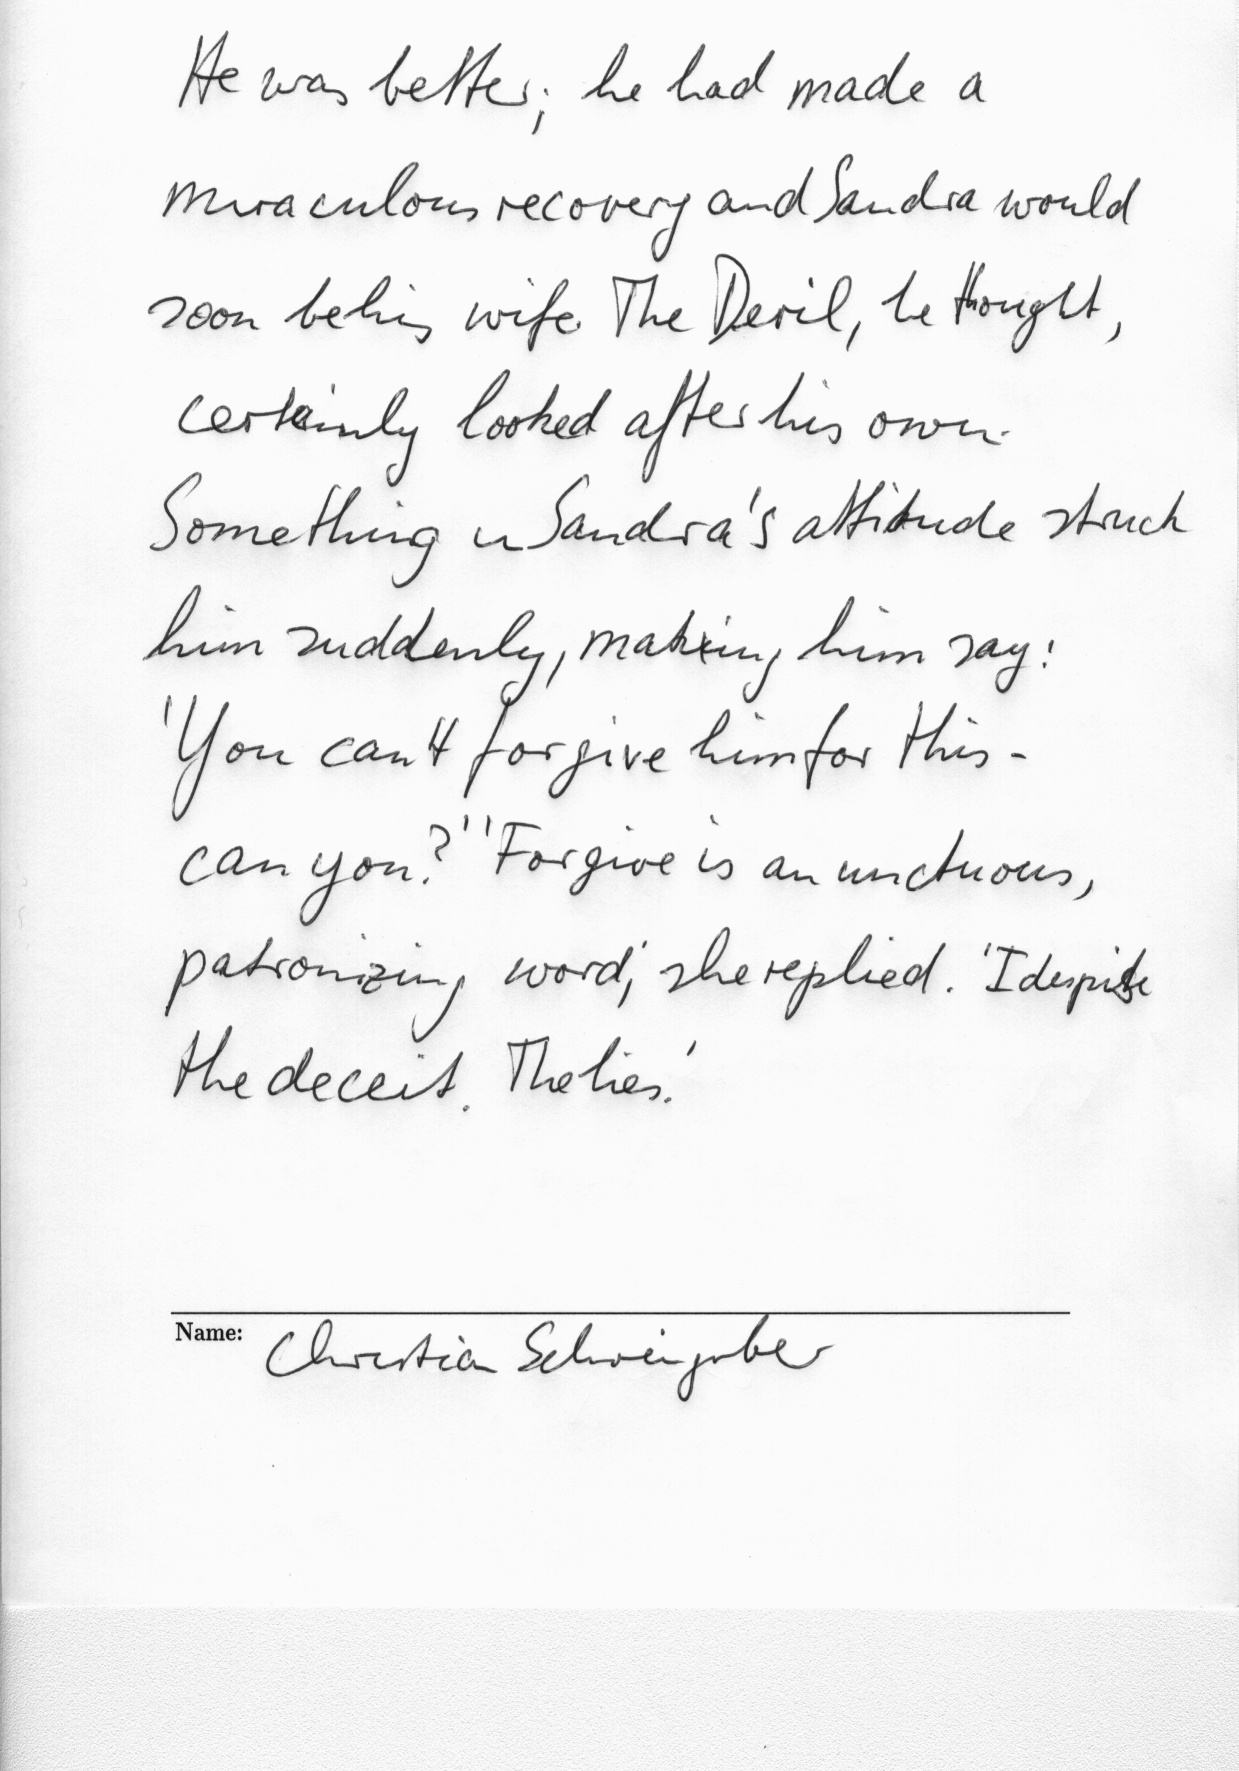 He was better; he had made a
miraculous recovery and Sandra would
soon be his wife. The Devil, he thought,
certainly looked after his own.
Something in Sandra's attitude struck
him suddenly, making him say:
'You can't forgive him for this -
can you?' 'Forgive is an unctuous,
patronizing word,' she replied. 'I despise
the deceit. The lies.'
Name: Christian Schweingruber